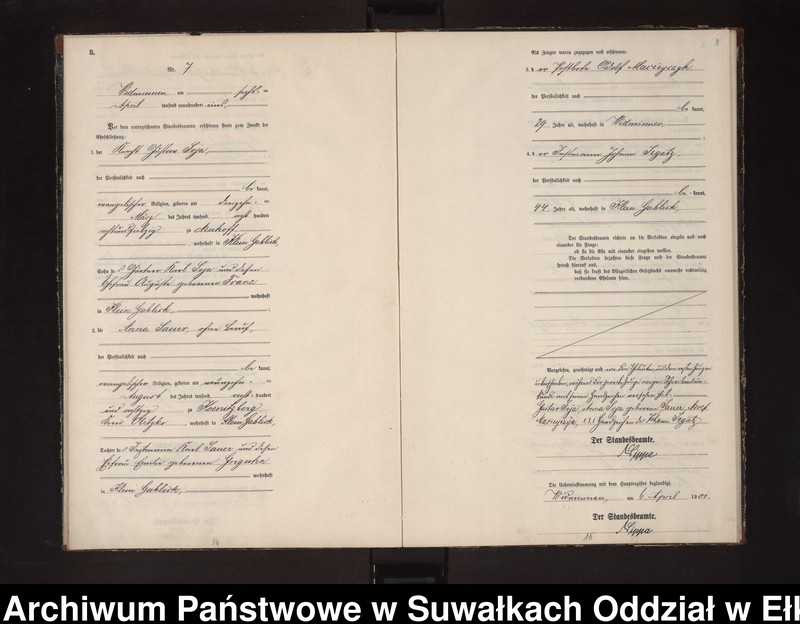 8.
Nr. 7
Widminnen am sechs=
April tausend neunhundert eins
Vor dem unterzeichneten Standesbeamten erschienen heute zum Zwecke der
Eheschließung:
1. der Knecht Gustav Soja,
der Persönlichkeit nach
be kannt,
evangelischer Religion, geboren am dreizehn=
März des Jahres tausend acht hundert
achtundsiebzig zu Neuhoff
, wohnhaft in Klein Gablick,
Sohn des Gärtner Karl Soja und dessen
Ehefrau Auguste geborener Franz
wohnhaft
in Klein Gablick,
2. die Anna Sauer, ohne Beruf,
der Persönlichkeit nach
be kannt,
evangelischer Religion, geboren am neunzehn=
August des Jahres tausend acht hundert
und achtzig zu
Kreis Oletzko, wohnhaft in Klein Gablick,
Tochter des Instmann Karl Sauer und dessen
Ehefrau geborenen
wohnhaft
in Klein Gablick,
14
8
Als Zeugen waren zugezogen und erschienen:
3. der Postbote Adolf
der Persönlichkeit nach
be kannt,
29 Jahre alt, wohnhaft in Widminnen
4. der Instmann Johann Segatz,
der Persönlichkeit nach
be kannt,
44 Jahre alt, wohnhaft in Klein Gablick,
Der Standesbeamte richtete an die Verlobten einzeln und nach
einander die Frage:
ob sie die Ehe mit einander eingehen wollen.
Die Verlobten bejahten diese Frage und der Standesbeamte
sprach hierauf aus,
daß sie kraft des Bürgerlichen Gesetzbuchs nunmehr rechtmäßig
verbundene Eheleute seien.
Vorgelesen, genehmigt und von den Eheleuten und dem ersten Zeugen
unterschrieben, während der zweite Zeuge wegen Schreibensun=
kunde mit seinem Handzeichen versehen hat.
Gustav Soja, Anna Soja geborene Sauer, Adolf
xxx Handzeichen des Johann Segatz
Der Standesbeamte.
Lippa
Die Uebereinstimmung mit dem Hauptregister beglaubigt.
Widminnen, am 6 April 1901.
Der Standesbeamte.
Lippa
15
Archiwum Państwowe w Suwałkach Oddział w Ełk